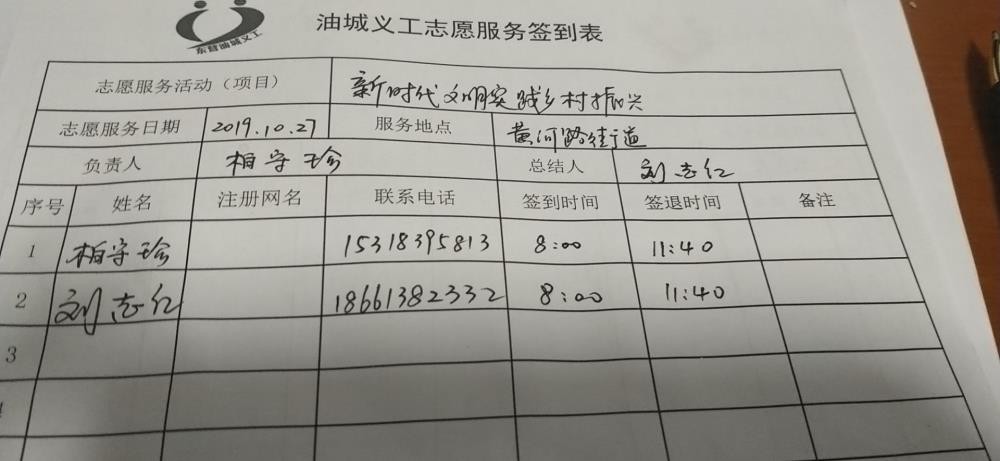 油城义工志愿服务签到表
东营油城义工
志愿服务活动（项目） 新时代文明实践乡村振兴
志愿服务日期 2019.10.27 服务地点 黄河路街道
负责人 柏守珍 总结人 刘志红
序号 姓名 注册网名 联系电话 签到时间 签退时间 备注
1 柏守珍 15318395813 8:00 11:40
2 刘志红 18661382332 8:00 11:40
3
4